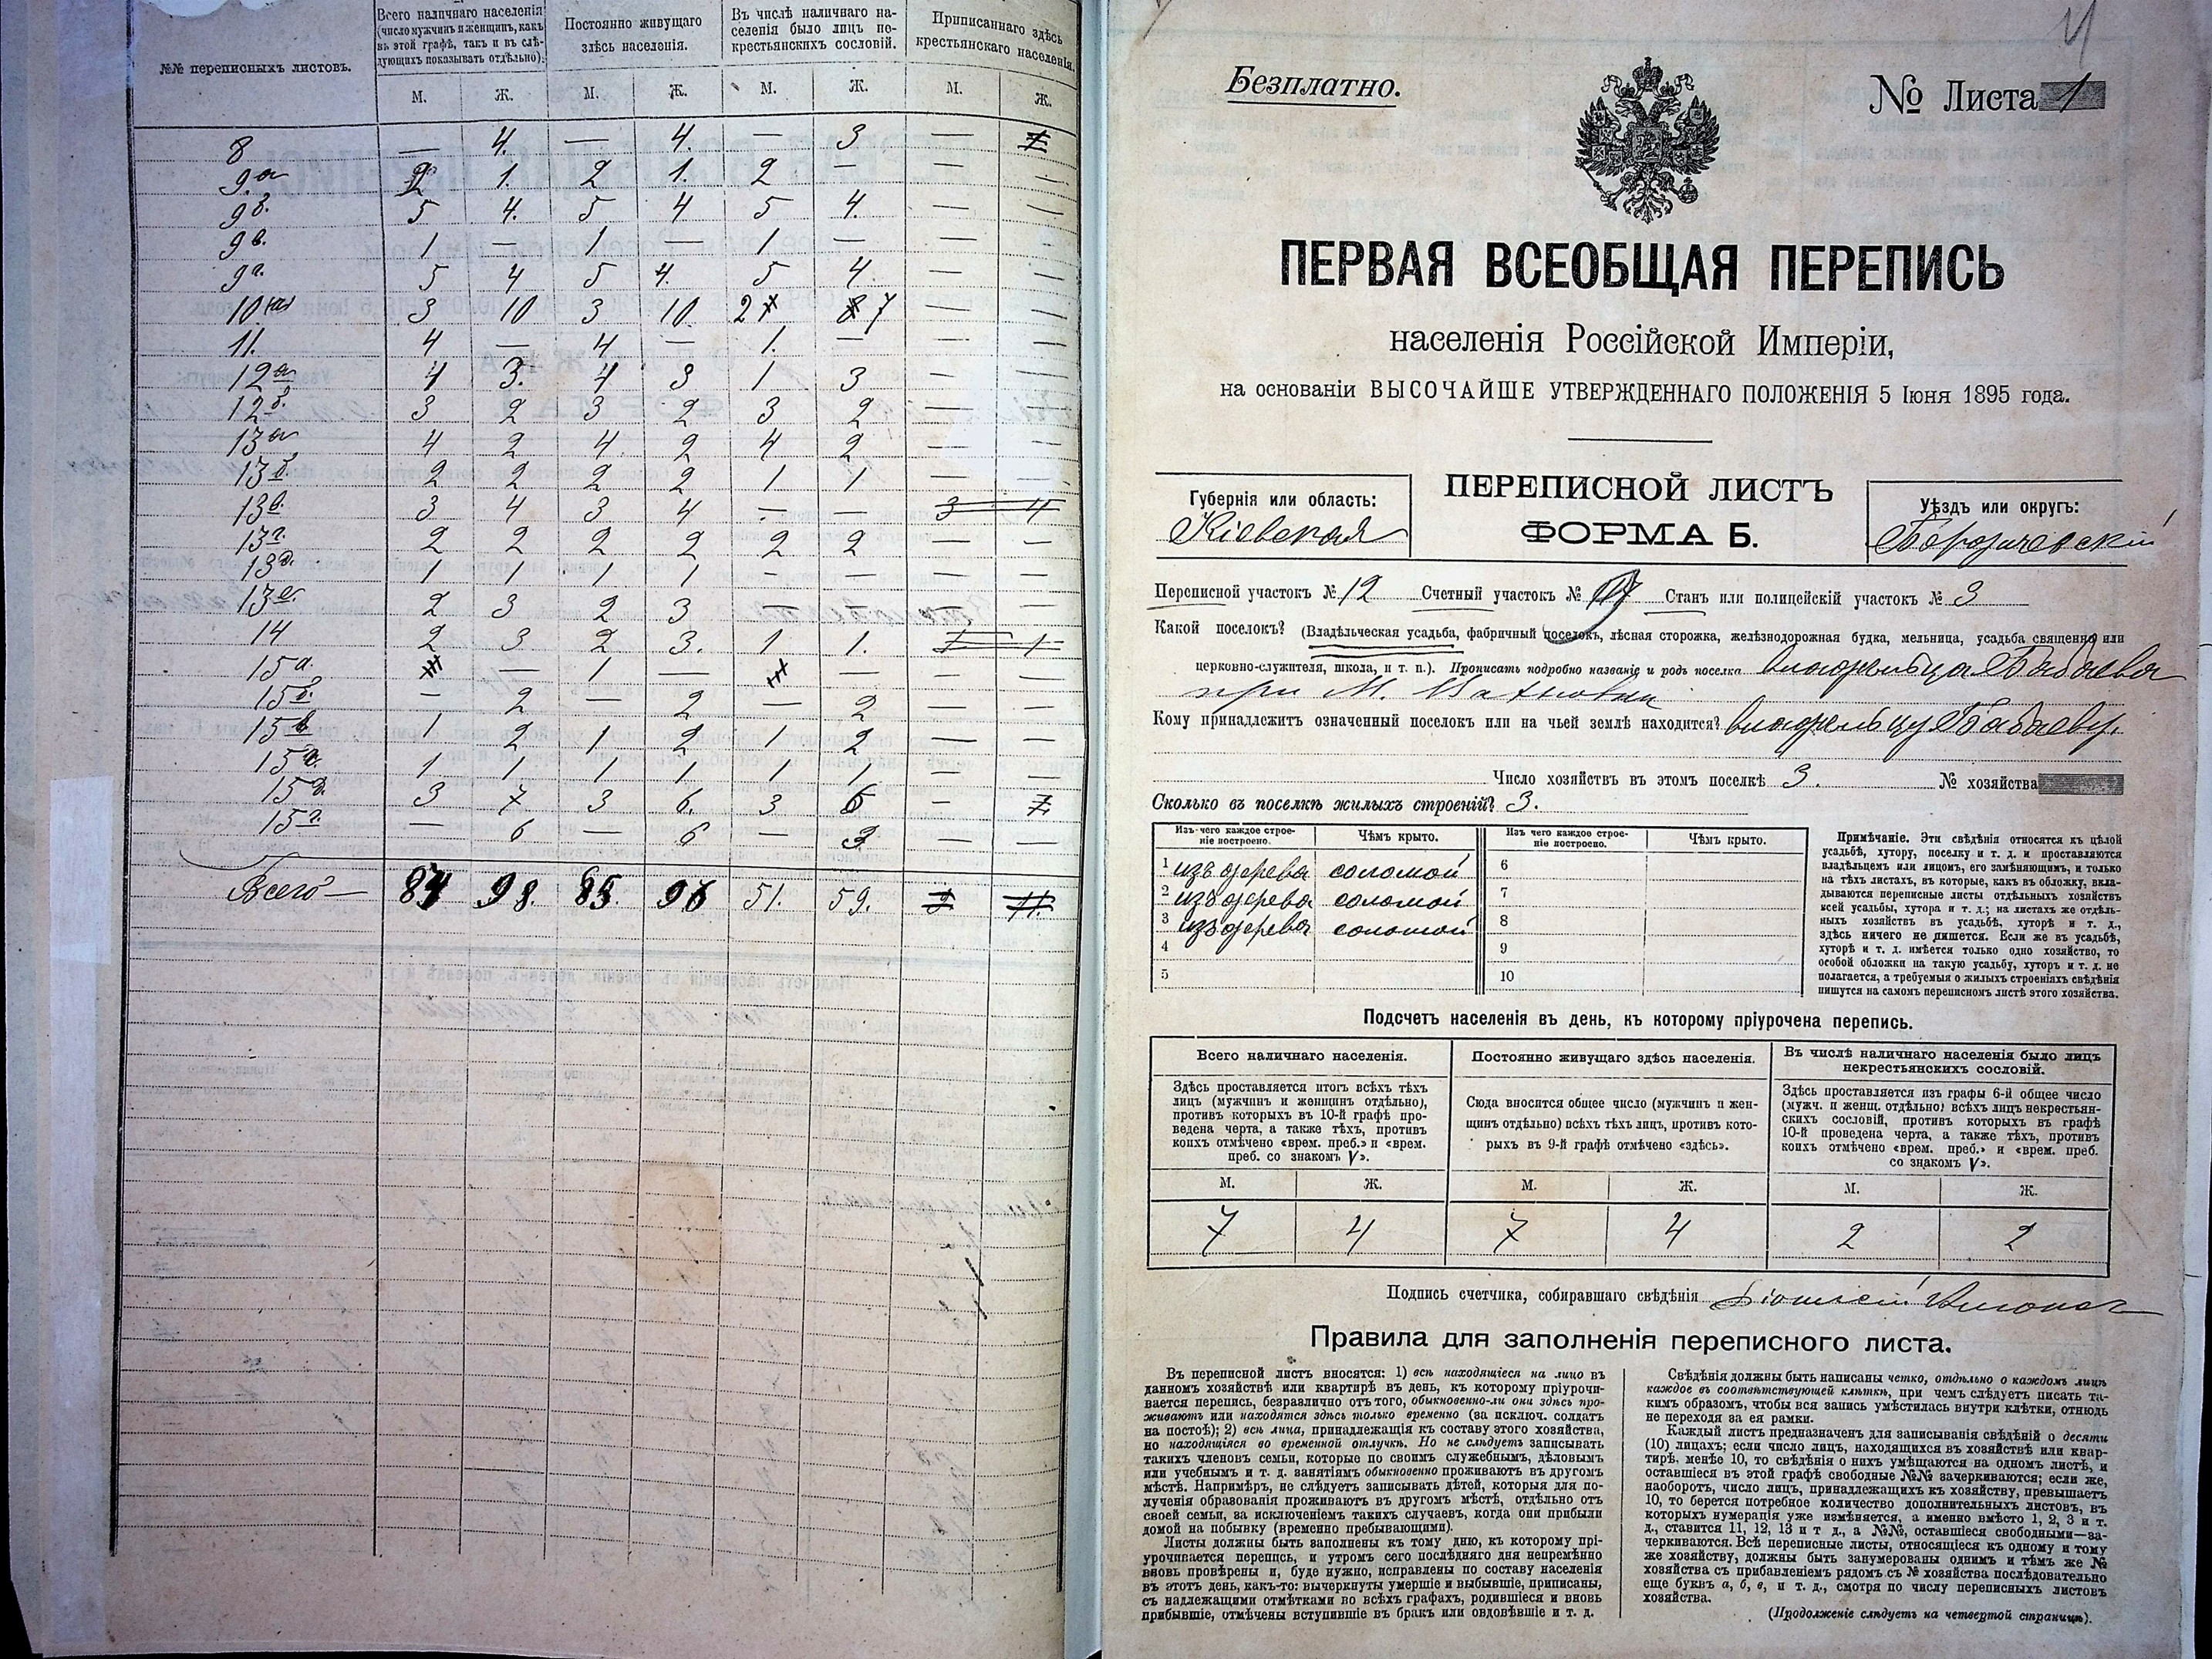 №№ переписныхъ листовъ.
Всего наличнаго населенія
(число мужчинъ и женщинъ, какъ
въ этой графѣ, такъ и въ слѣ-
дующихъ показывать отдѣльно).
Постоянно живущаго
здѣсь населенія.
Въ числѣ наличнаго на-
селенія было лицъ не-
крестьянскихъ сословій.
Приписаннаго здѣсь
крестьянскаго населенія.
М. Ж. М. Ж. М. Ж. М. Ж.
8 — 4. — 4. — 3 —
9а 2 1. 2 1. 2 — — —
9б. 5 4. 5 4 5 4. — —
9в. 1 — 1 — 1 — — —
9г. 5 4 5 4. 5 4. — —
10 3 10 3 10 2 7 — —
11. 4 — 4 — 1. — — —
12а 4 3. 4 3 1 3 — —
12б. 3 2 3 2 3 2 — —
13а 4 2 4. 2 4 2 — —
13б. 2 2 2 2 1 1 — —
13в. 3 4 3 4 — — 3 4
13г. 2 2 2 2 2 2 — —
13д. 1 1 1 1 — — — —
13е. 2 3 2 3 — — — —
14 2 3 2 3. 1 1. 1 1
15а. — 1 — — — —
15б. — 2 — 2 — 2 — —
15в 1 2 1 2 1 2 — —
15г. 1 1 1 1 1 1 — —
15д. 3 7 3 6. 3 6 —
15 — 6 — 6 — 3 — —
Всего — 84 98. 85. 96 51. 59.
Безплатно.
№ Листа 1
ПЕРВАЯ ВСЕОБЩАЯ ПЕРЕПИСЬ
населенія Россійской Имперіи,
на основаніи ВЫСОЧАЙШЕ УТВЕРЖДЕННАГО ПОЛОЖЕНІЯ 5 Іюня 1895 года.
Губернія или область:
Кіевская
ПЕРЕПИСНОЙ ЛИСТЪ
ФОРМА Б.
Уѣздъ или округъ:
Бердичевскій
Переписной участокъ № 12 Счетный участокъ № Станъ или полицейскій участокъ № 3
Какой поселокъ? (Владѣльческая усадьба, фабричный поселокъ, лѣсная сторожка, желѣзнодорожная будка, мельница, усадьба священно или
церковно-служителя, школа, и т. п.). Прописать подробно названіе и родъ поселка владѣльца Бабаева
при М. Вахновки
Кому принадлежитъ означенный поселокъ или на чьей землѣ находится? владѣльцу Бабаеву.
Число хозяйствъ въ этомъ поселкѣ 3. № хозяйства
Сколько въ поселкѣ жилыхъ строеній? 3.
Изъ чего каждое строе-
ніе построено.
Чѣмъ крыто.
Изъ чего каждое строе-
ніе построено.
Чѣмъ крыто.
1 изъ дерева соломой 6
2 изъ дерева соломой 7
3 изъ дерева соломой 8
4 9
5 10
Примѣчаніе. Эти свѣдѣнія относятся къ цѣлой
усадьбѣ, хутору, поселку и т. д. и проставляются
владѣльцемъ или лицомъ, его замѣняющимъ, и только
на тѣхъ листахъ, въ которые, какъ въ обложку, вкла-
дываются переписные листы отдѣльныхъ хозяйствъ
всей усадьбы, хутора и т. д.; на листахъ же отдѣль-
ныхъ хозяйствъ въ усадьбѣ, хуторѣ и т. д.,
здѣсь ничего не пишется. Если же въ усадьбѣ,
хуторѣ и т. д. имѣется только одно хозяйство, то
особой обложки на такую усадьбу, хуторъ и т. д. не
полагается, а требуемыя о жилыхъ строеніяхъ свѣдѣнія
пишутся на самомъ переписномъ листѣ этого хозяйства.
Подсчетъ населенія въ день, къ которому пріурочена перепись.
Всего наличнаго населенія.
Здѣсь проставляется итогъ всѣхъ тѣхъ
лицъ (мужчинъ и женщинъ отдѣльно),
противъ которыхъ въ 10-й графѣ про-
ведена черта, а также тѣхъ, противъ
коихъ отмѣчено «врем. преб.» и «врем.
преб. со знакомъ V».
Постоянно живущаго здѣсь населенія.
Сюда вносится общее число (мужчинъ и жен-
щинъ отдѣльно) всѣхъ тѣхъ лицъ, противъ кото-
рыхъ въ 9-й графѣ отмѣчено «здѣсь».
Въ числѣ наличнаго населенія было лицъ
некрестьянскихъ сословій.
Здѣсь проставляется изъ графы 6-й общее число
(мужч. и женщ. отдѣльно) всѣхъ лицъ некрестьян-
скихъ сословій, противъ которыхъ въ графѣ
10-й проведена черта, а также тѣхъ, противъ
коихъ отмѣчено «врем. преб.» и «врем. преб.
со знакомъ V».
М. Ж. М. Ж. М. Ж.
7 4 7 4 2 2
Подпись счетчика, собиравшаго свѣдѣнія
Правила для заполненія переписного листа.
Въ переписной листъ вносятся: 1) всѣ находящіеся на лицо въ
данномъ хозяйствѣ или квартирѣ въ день, къ которому пріурочи-
вается перепись, безразлично отъ того, обыкновенно-ли они здѣсь про-
живаютъ или находятся здѣсь только временно (за исключ. солдатъ
на постоѣ); 2) всѣ лица, принадлежащія къ составу этого хозяйства,
но находящіяся во временной отлучкѣ. Но не слѣдуетъ записывать
такихъ членовъ семьи, которые по своимъ служебнымъ, дѣловымъ
или учебнымъ и т. д. занятіямъ обыкновенно проживаютъ въ другомъ
мѣстѣ. Напримѣръ, не слѣдуетъ записывать дѣтей, которыя для по-
лученія образованія проживаютъ въ другомъ мѣстѣ, отдѣльно отъ
своей семьи, за исключеніемъ такихъ случаевъ, когда они прибыли
домой на побывку (временно пребывающими).
Листы должны быть заполнены къ тому дню, къ которому прі-
урочивается перепись, и утромъ сего послѣдняго дня непремѣнно
вновь провѣрены и, буде нужно, исправлены по составу населенія
въ этотъ день, какъ-то: вычеркнуты умершіе и выбывшіе, приписаны,
съ надлежащими отмѣтками во всѣхъ графахъ, родившіеся и вновь
прибывшіе, отмѣчены вступившіе въ бракъ или овдовѣвшіе и т. д.
Свѣдѣнія должны быть написаны четко, отдѣльно о каждомъ лицѣ
каждое въ соотвѣтствующей клѣткѣ, при чемъ слѣдуетъ писать та-
кимъ образомъ, чтобы вся запись умѣстилась внутри клѣтки, отнюдь
не переходя за ея рамки.
Каждый листъ предназначенъ для записыванія свѣдѣній о десяти
(10) лицахъ; если число лицъ, находящихся въ хозяйствѣ или квар-
тирѣ, менѣе 10, то свѣдѣнія о нихъ умѣщаются на одномъ листѣ, и
оставшіеся въ этой графѣ свободные №№ зачеркиваются; если же,
наоборотъ, число лицъ, принадлежащихъ къ хозяйству, превышаетъ
10, то берется потребное количество дополнительныхъ листовъ, въ
которыхъ нумерація уже измѣняется, а именно вмѣсто 1, 2, 3 и т.
д., ставится 11, 12, 13 и т д., а №№, оставшіеся свободными—за-
черкиваются. Всѣ переписные листы, относящіеся къ одному и тому
же хозяйству, должны быть занумерованы однимъ и тѣмъ же №
хозяйства съ прибавленіемъ рядомъ съ № хозяйства послѣдовательно
еще буквъ а, б, в, и т. д., смотря по числу переписныхъ листовъ
хозяйства.
(Продолженіе слѣдуетъ на четвертой страницѣ).